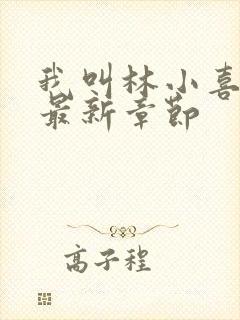 我叫林小喜
最新章节
高子程